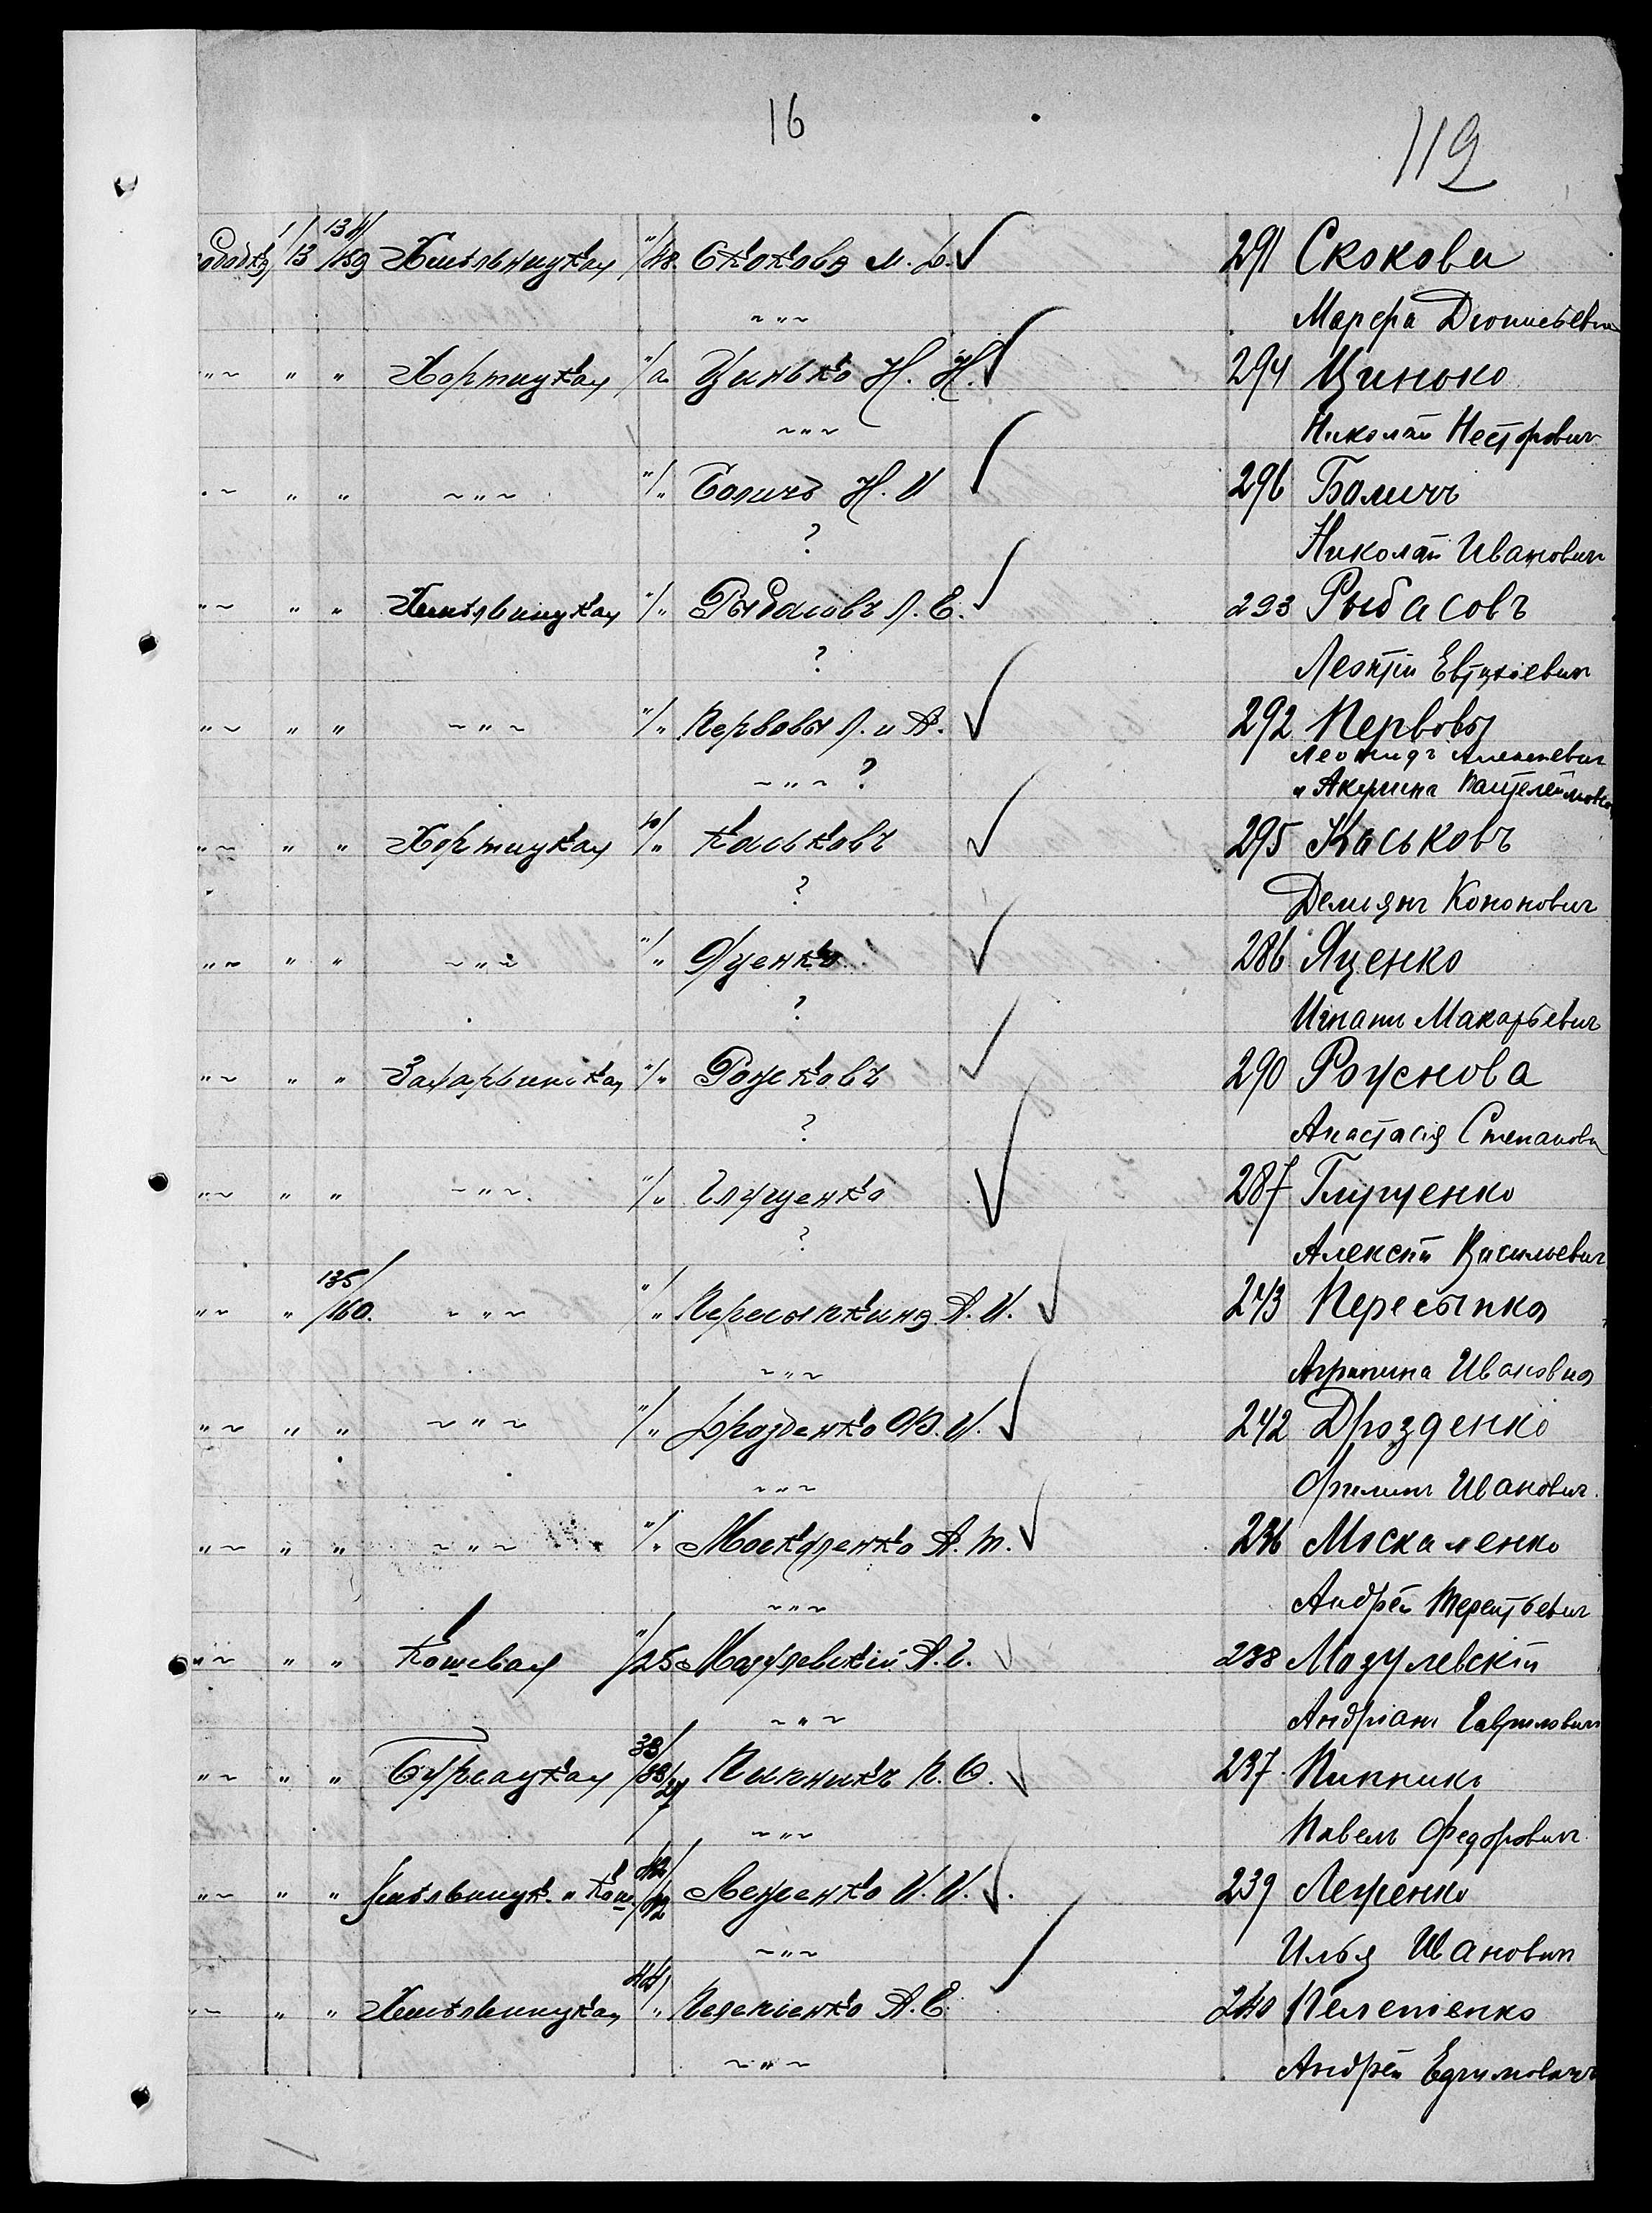 16
112
1/13 134/159 Хмѣльницкая "/48. Скокова М. Д. 291 Скокова
~ " ~ Марфа Дионисьевна
" ~ " " Хортицкая "/а. Цинько Н. Н. 294 Цинько
~ " ~ Николай Нестерович
" ~ " " ~ " ~ "/" Баличъ Н. И 296 Баличъ
? Николай Иванович
" ~ " " Хмѣльницкая "/" Рыбасовъ Л. Е. 293 Рыбасовъ
? Леонтій Евтихіевич
" ~ " " ~ " ~ "/" Первовы Л. и А. 292 Первовы
Леонидъ Алексѣевич
~ " ~ ? и Акулина Пантелеймовна
" ~ " " Хортицкая "/" Каськовъ 295 Каськовъ
? Демьянъ Кононович
" ~ " " ~ " ~ "/" Яценко 286 Яценко
? Игнатъ Макарьевич
" ~ " " Захарьинская "/" Рожковъ 290 Рожнова
? Анастасія Степанова
" ~ " " ~ " ~ "/" Глущенко 287 Глущенко
? Алексѣй Васильевич
" ~ " 135/160. ~ " ~ "/" Пересыпкина А. И. 243 Пересыпка
~ " ~ Агрипина Ивановна
" ~ " " ~ " ~ "/" Дрозденко Ф. И. 242 Дрозденко
~ " ~ Филипъ Иванович
" ~ " " ~ " ~ "/" Москаленко А. Т. 236 Москаленко
~ " ~ Андрей Терентьевич
" ~ " " Кошевая "/25 Мазулевскій А. Г. 238 Мазулевскій
~ " ~ Андріанъ Гаврилович
" ~ " " Бурсацкая 33/33/24 Пипникъ П. Ф. 237 Пипникъ
~ " ~ Павелъ Федорович
" ~ " " Хмѣльницк. и Кош. 42/12 Леженко И. И. 239 Леженко
~ " ~ Илья Иванович
" ~ " " Хмѣльницкая 44/" Пелепенко А. Е. 240 Пелепенко
~ " ~ Андрей Ефимовичъ